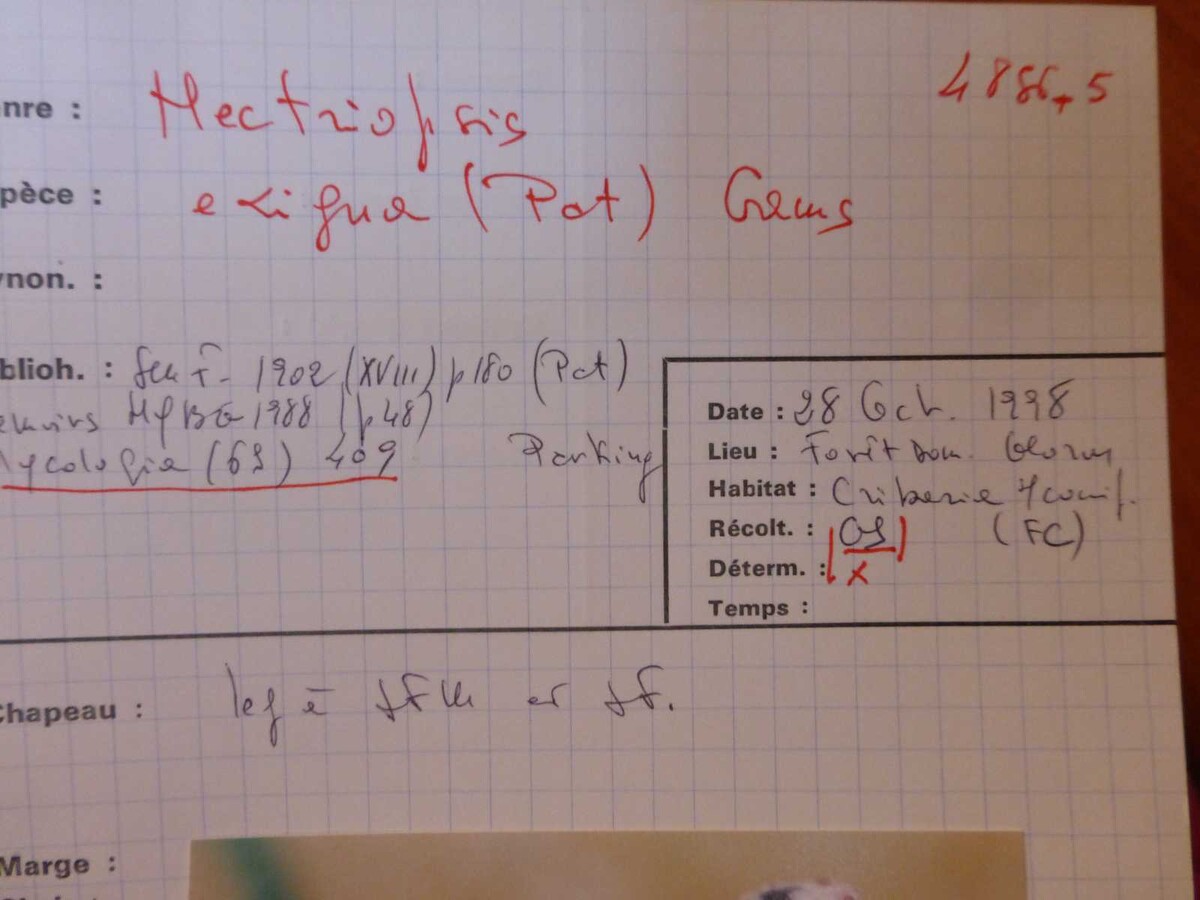 4886+5
nre : Nectriopsis
pèce : exigua (Pat) Gams
ynon. :
blioh. : 1902 (XVIII) p 180 (Pat)
MyBG 1988 (p 48)
ycologia (69) 409
Date : 28 Oct. 1998
Lieu : Forêt Dom.
Habitat : Cribraria / conif.
Récolt. : OS (FC)
Déterm. : x
Temps :
Chapeau : leg
Marge :